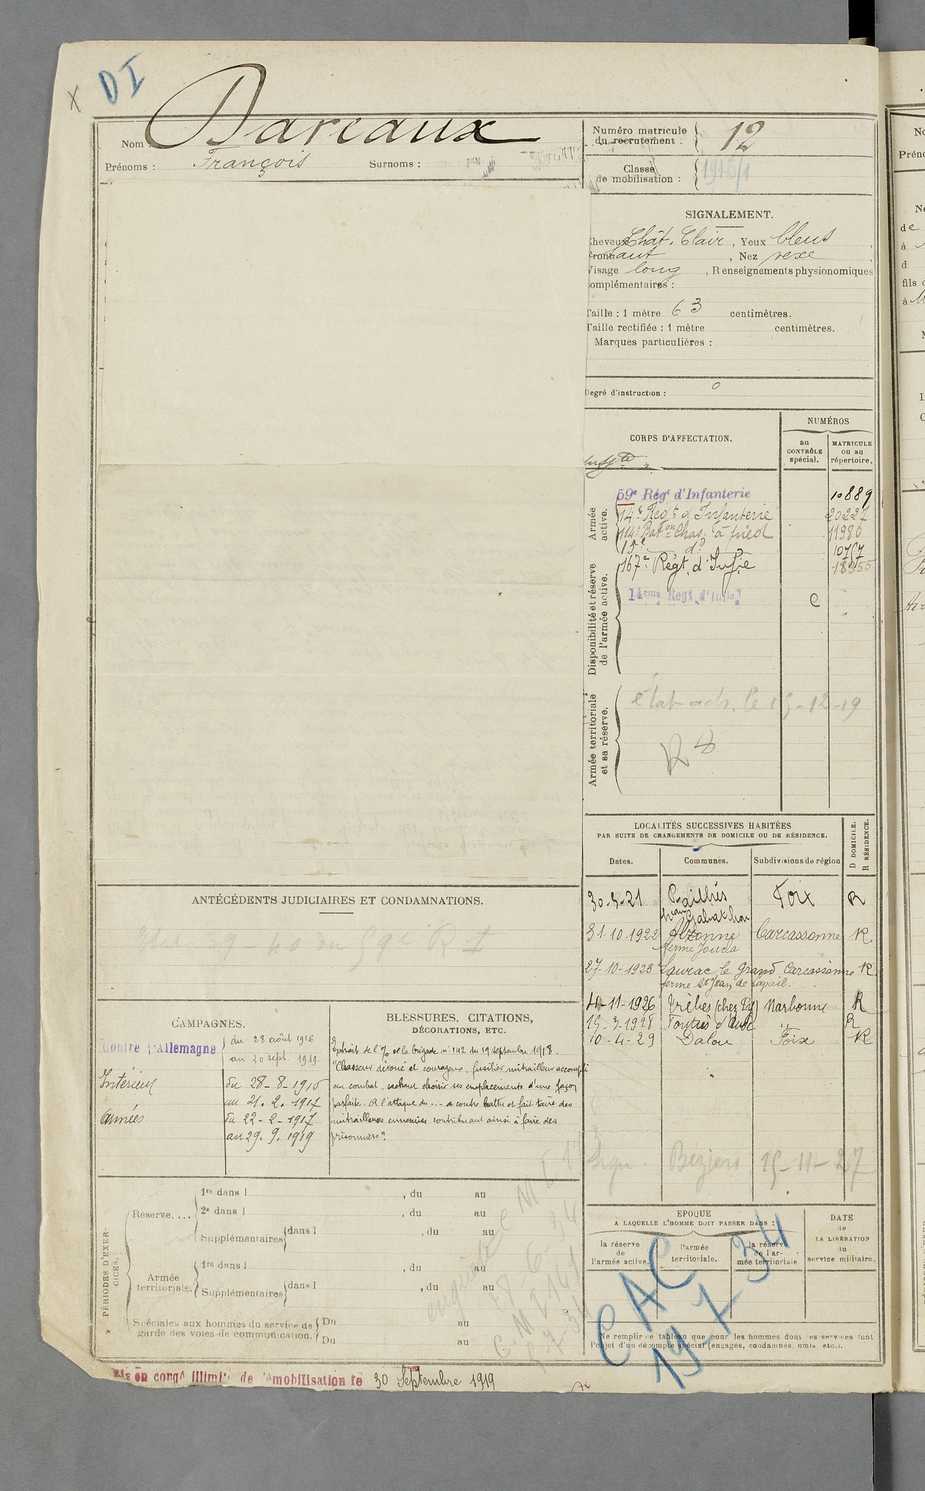 X DI
Nom : Dareaux
Prénoms : François Surnoms :
Numéro matricule du recrutement : 12
Classe de mobilisation :
SIGNALEMENT.
Cheveux Chât. Clair, Yeux bleus
Front haut, Nez rexe
Visage long, Renseignements physionomiques
complémentaires :
Taille : 1 mètre 63 centimètres.
Taille rectifiée : 1 mètre centimètres.
Marques particulières :
Degré d'instruction : 0
CORPS D'AFFECTATION.
NUMÉROS
au CONTRÔLE spécial.
MATRICULE ou au répertoire.
Armée active.
59e Régt d'Infanterie 10889
14e Régt d'Infanterie 20227
114e Baton Chas. à pied 11980
15e do 10757
167e Régt d'Infie
Disponibilité et réserve de l'armée active.
14ème Régt d'Infie
Armée territoriale et sa réserve.
le 15-12-19
LOCALITÉS SUCCESSIVES HABITÉES
PAR SUITE DE CHANGEMENTS DE DOMICILE OU DE RÉSIDENCE.
Dates. Communes. Subdivisions de région
D DOMICILE. R RÉSIDENCE.
30-5-21 Cailhés Foix R
31-10-1922 Alzonne Carcassonne R
ferme Joucla
27-10-1923 Laurac le Grand Carcassonne R
ferme St Jean de
4-11-1926 Trèbes (chez Narbonne R
15-3-1928 d'Aude " R
10-4-29 Dalou Foix R
Béziers 15-11-27
ANTÉCÉDENTS JUDICIAIRES ET CONDAMNATIONS.
39 40 du 59e R I
CAMPAGNES.
Contre l'Allemagne du 28 août 1916
au 30 sept. 1919.
Intérieur du 28-8-1916
au 21-2-1917
Armées du 22-2-1917
au 29.9.1919
BLESSURES, CITATIONS,
DÉCORATIONS, ETC.
Extrait de l'O/ de la brigade n° 142 du 19 septembre 1918.
"Chasseur dévoué et courageux, fusilier mitrailleur accompli
au combat, sachant choisir ses emplacements d'une façon
parfaite. A l'attaque du ... a contre battu et fait taire des
mitrailleuses ennemies contribuant ainsi à faire des
prisonniers".
PÉRIODES D'EXERCICES.
Réserve....
1re dans l , du au
2e dans l , du au
Supplémentaires dans l , du au
Armée territoriale.
1re dans l , du au
Supplémentaires dans l , du au
Spéciales aux hommes du service de garde des voies de communication.
Du au
Du au
EPOQUE
A LAQUELLE L'HOMME DOIT PASSER DANS :
la réserve de l'armée active.
l'armée territoriale.
la réserve de l'armée territoriale
DATE de LA LIBÉRATION du service militaire.
CAC
19-7-34
Ne remplir ce tableau que pour les hommes dont les services font
l'objet d'un décompte spécial (engagés, condamnés, omis, etc.).
Mis en congé illimité de démobilisation le 30 Septembre 1919